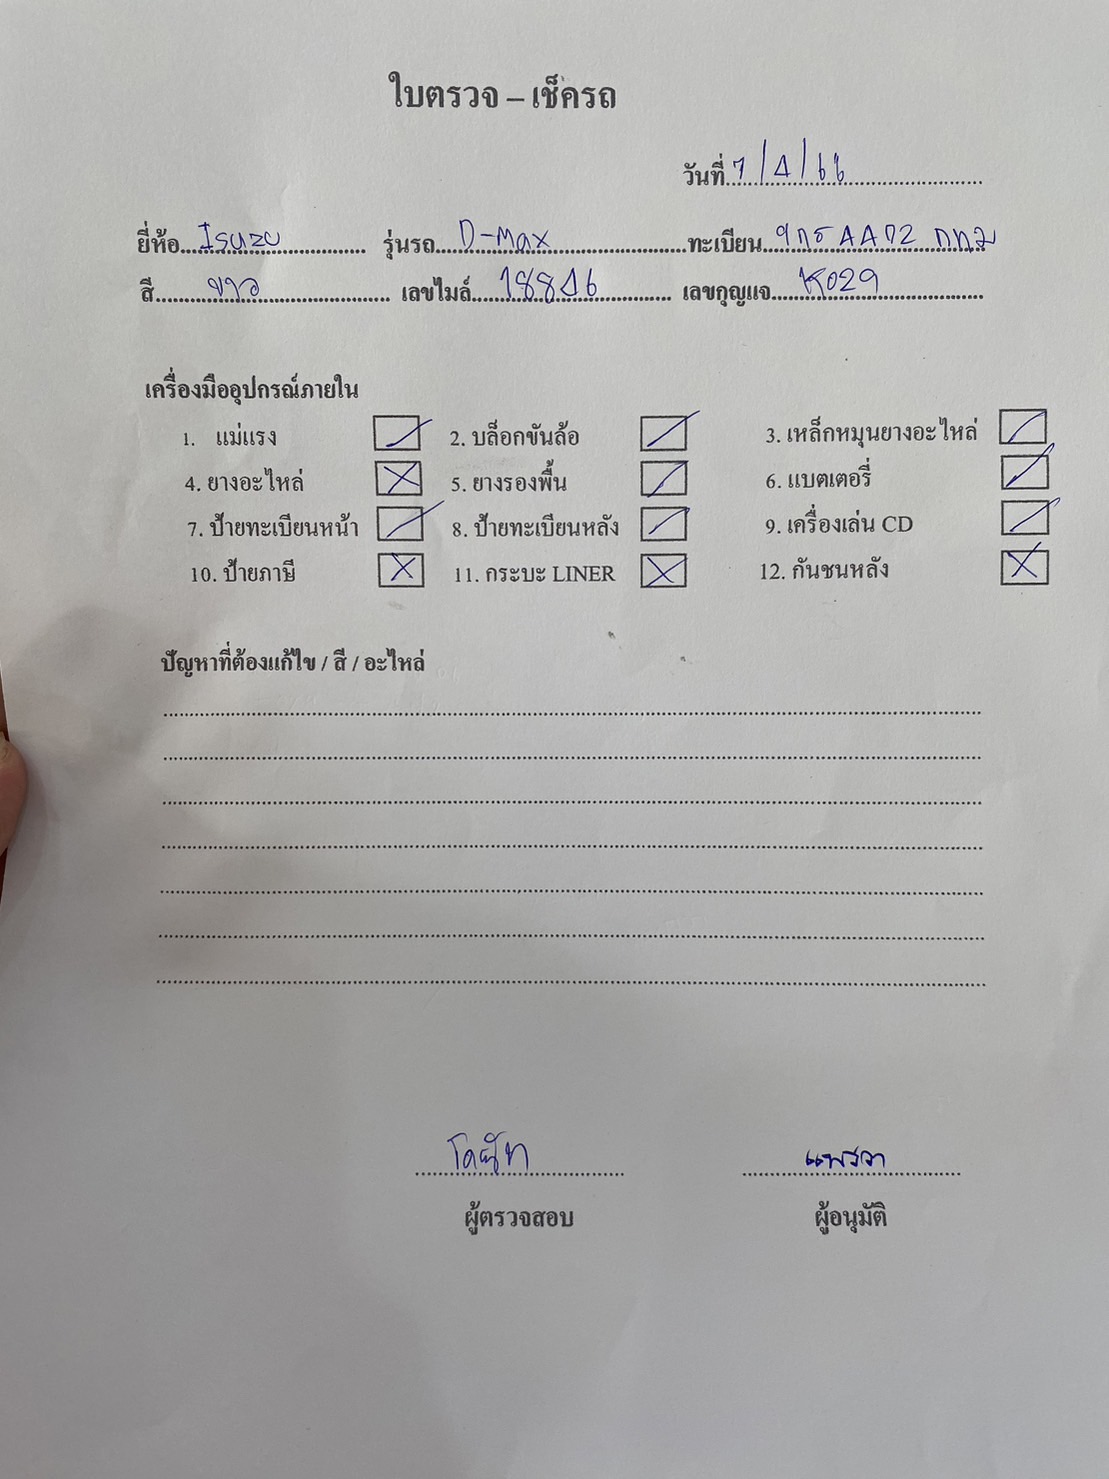 ใบตรวจ – เช็ครถ
วันที่ 7/4/66
ยี่ห้อ Isuzu รุ่นรถ D-Max ทะเบียน กทม
สี ขาว เลขไมล์ 18846 เลขกุญแจ K029
เครื่องมืออุปกรณ์ภายใน
1. แม่แรง 2. บล็อกขันล้อ 3. เหล็กหมุนยางอะไหล่
4. ยางอะไหล่ 5. ยางรองพื้น 6. แบตเตอรี่
7. ป้ายทะเบียนหน้า 8. ป้ายทะเบียนหลัง 9. เครื่องเล่น CD
10. ป้ายภาษี 11. กระบะ LINER 12. กันชนหลัง
ปัญหาที่ต้องแก้ไข / สี / อะไหล่
แพรวา
ผู้ตรวจสอบ ผู้อนุมัติ